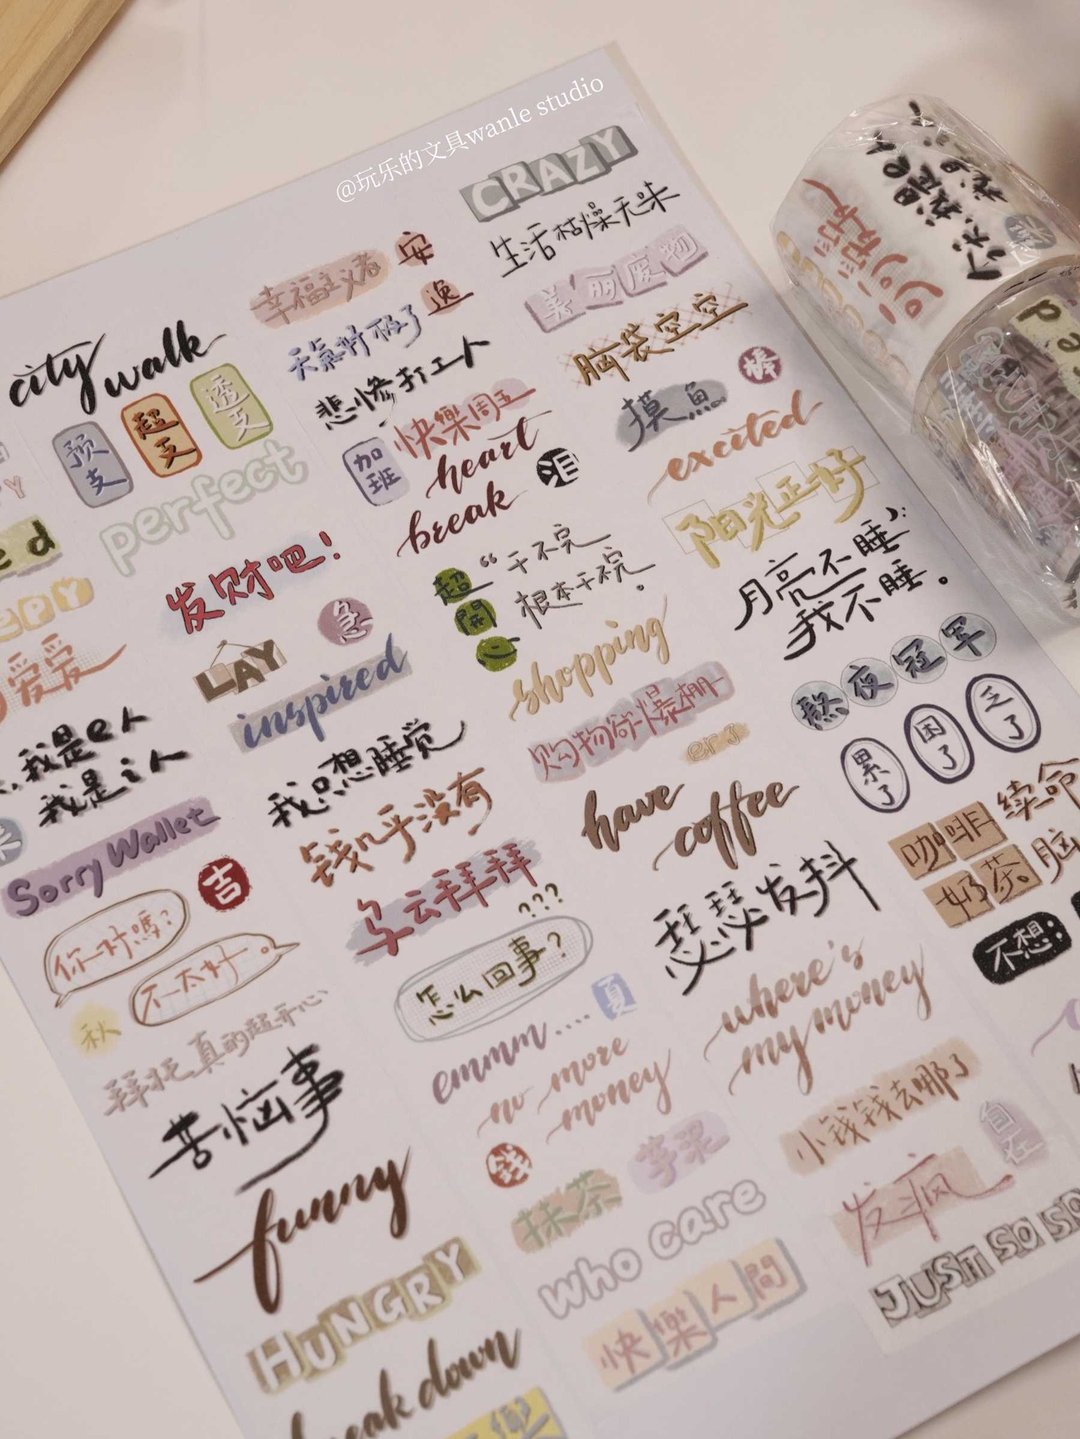 @玩乐的文具wanle studio
CRAZY
生活枯燥无味
幸福主义者
安
逸
美丽废物
天氣好极了
脑袋空空
city walk
悲惨打工人
棒
预支
超支
透支
快樂周五
摸魚
加班
heart
break
泪
excited
perfect
阳光正好
发财吧！
超
開
心
“干不完
根本干不完。
月亮不睡
我不睡。
急
LAY
inspired
shopping
熬夜冠军
爱爱
购物欲爆棚
累了
困了
乏了
我是e人
我是i人
我只想睡觉
have
coffee
续命
咖啡
奶茶
脑
Sorry Wallet
钱几乎没有
吉
乌云拜拜
瑟瑟发抖
不想
你一对嗎?
不太好。
???
怎么回事?
夏
秋
where's
my money
emmm....
拜托真的超开心
no more
money
苦恼事
小钱钱去哪了
自在
钱
抹茶
芋泥
发疯
funny
who care
JUST SO SO
HUNGRY
快樂人間
break down